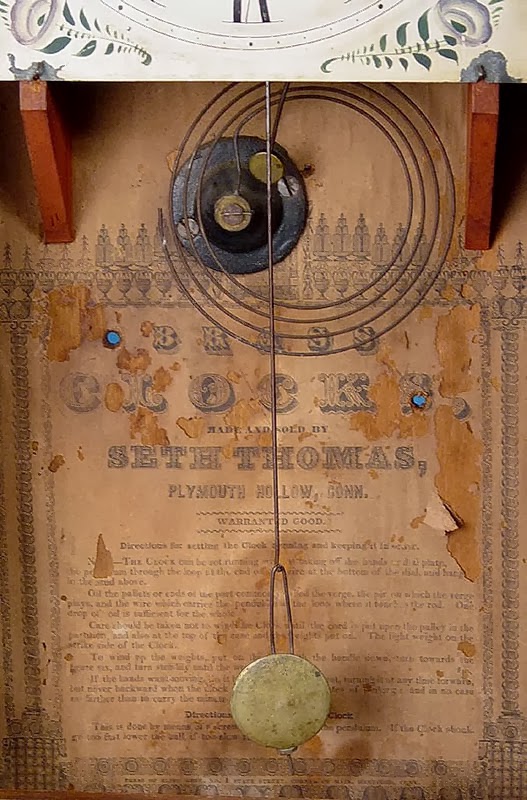 BRASS
CLOCKS,
MADE AND SOLD BY
SETH THOMAS,
PLYMOUTH HOLLOW, CONN.
WARRANTED GOOD.
Directions for setting the Clock running and keeping it in order.
THE CLOCK can be set running taking off the hands
the through the loop at the end of the wire at the bottom of the dial, and hang
in the stud above.
Oil the pallets or ends of the part the verge, the pin on which the verge
plays, and the wire which carries the where it touches the rod. One
drop of oil is sufficient for the whole.
Care should be taken not to the Clock until the cord is put upon the pulley in the
and also at the top of the case and weights put on. The light weight on the
strike side of the Clock.
To wind up the weights, put on the the handle down, turn towards the
figure six, and turn steadily until the
If the hands want moving, do it turning it at any time forward,
but never backward when the clock of striking; and in no case
no farther than to carry the minute
Directions Clock
This is done by means of a screw pendulum. If the Clock should
go too fast lower the ball, if too slow
STATE STREET,